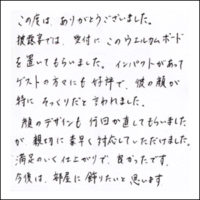 この度は、ありがとうございました。
披露宴では、受付に このウェルカムボード
を置いてもらいました。インパクトがあって
ゲストの方々にも好評で、彼の顔が
特に そっくりだと言われました。
顔のデザインも 何回か直してもらいました
が、親切に素早く対応していただけました。
満足のいく仕上がりで、良かったです。
今後は、部屋に飾りたいと思います